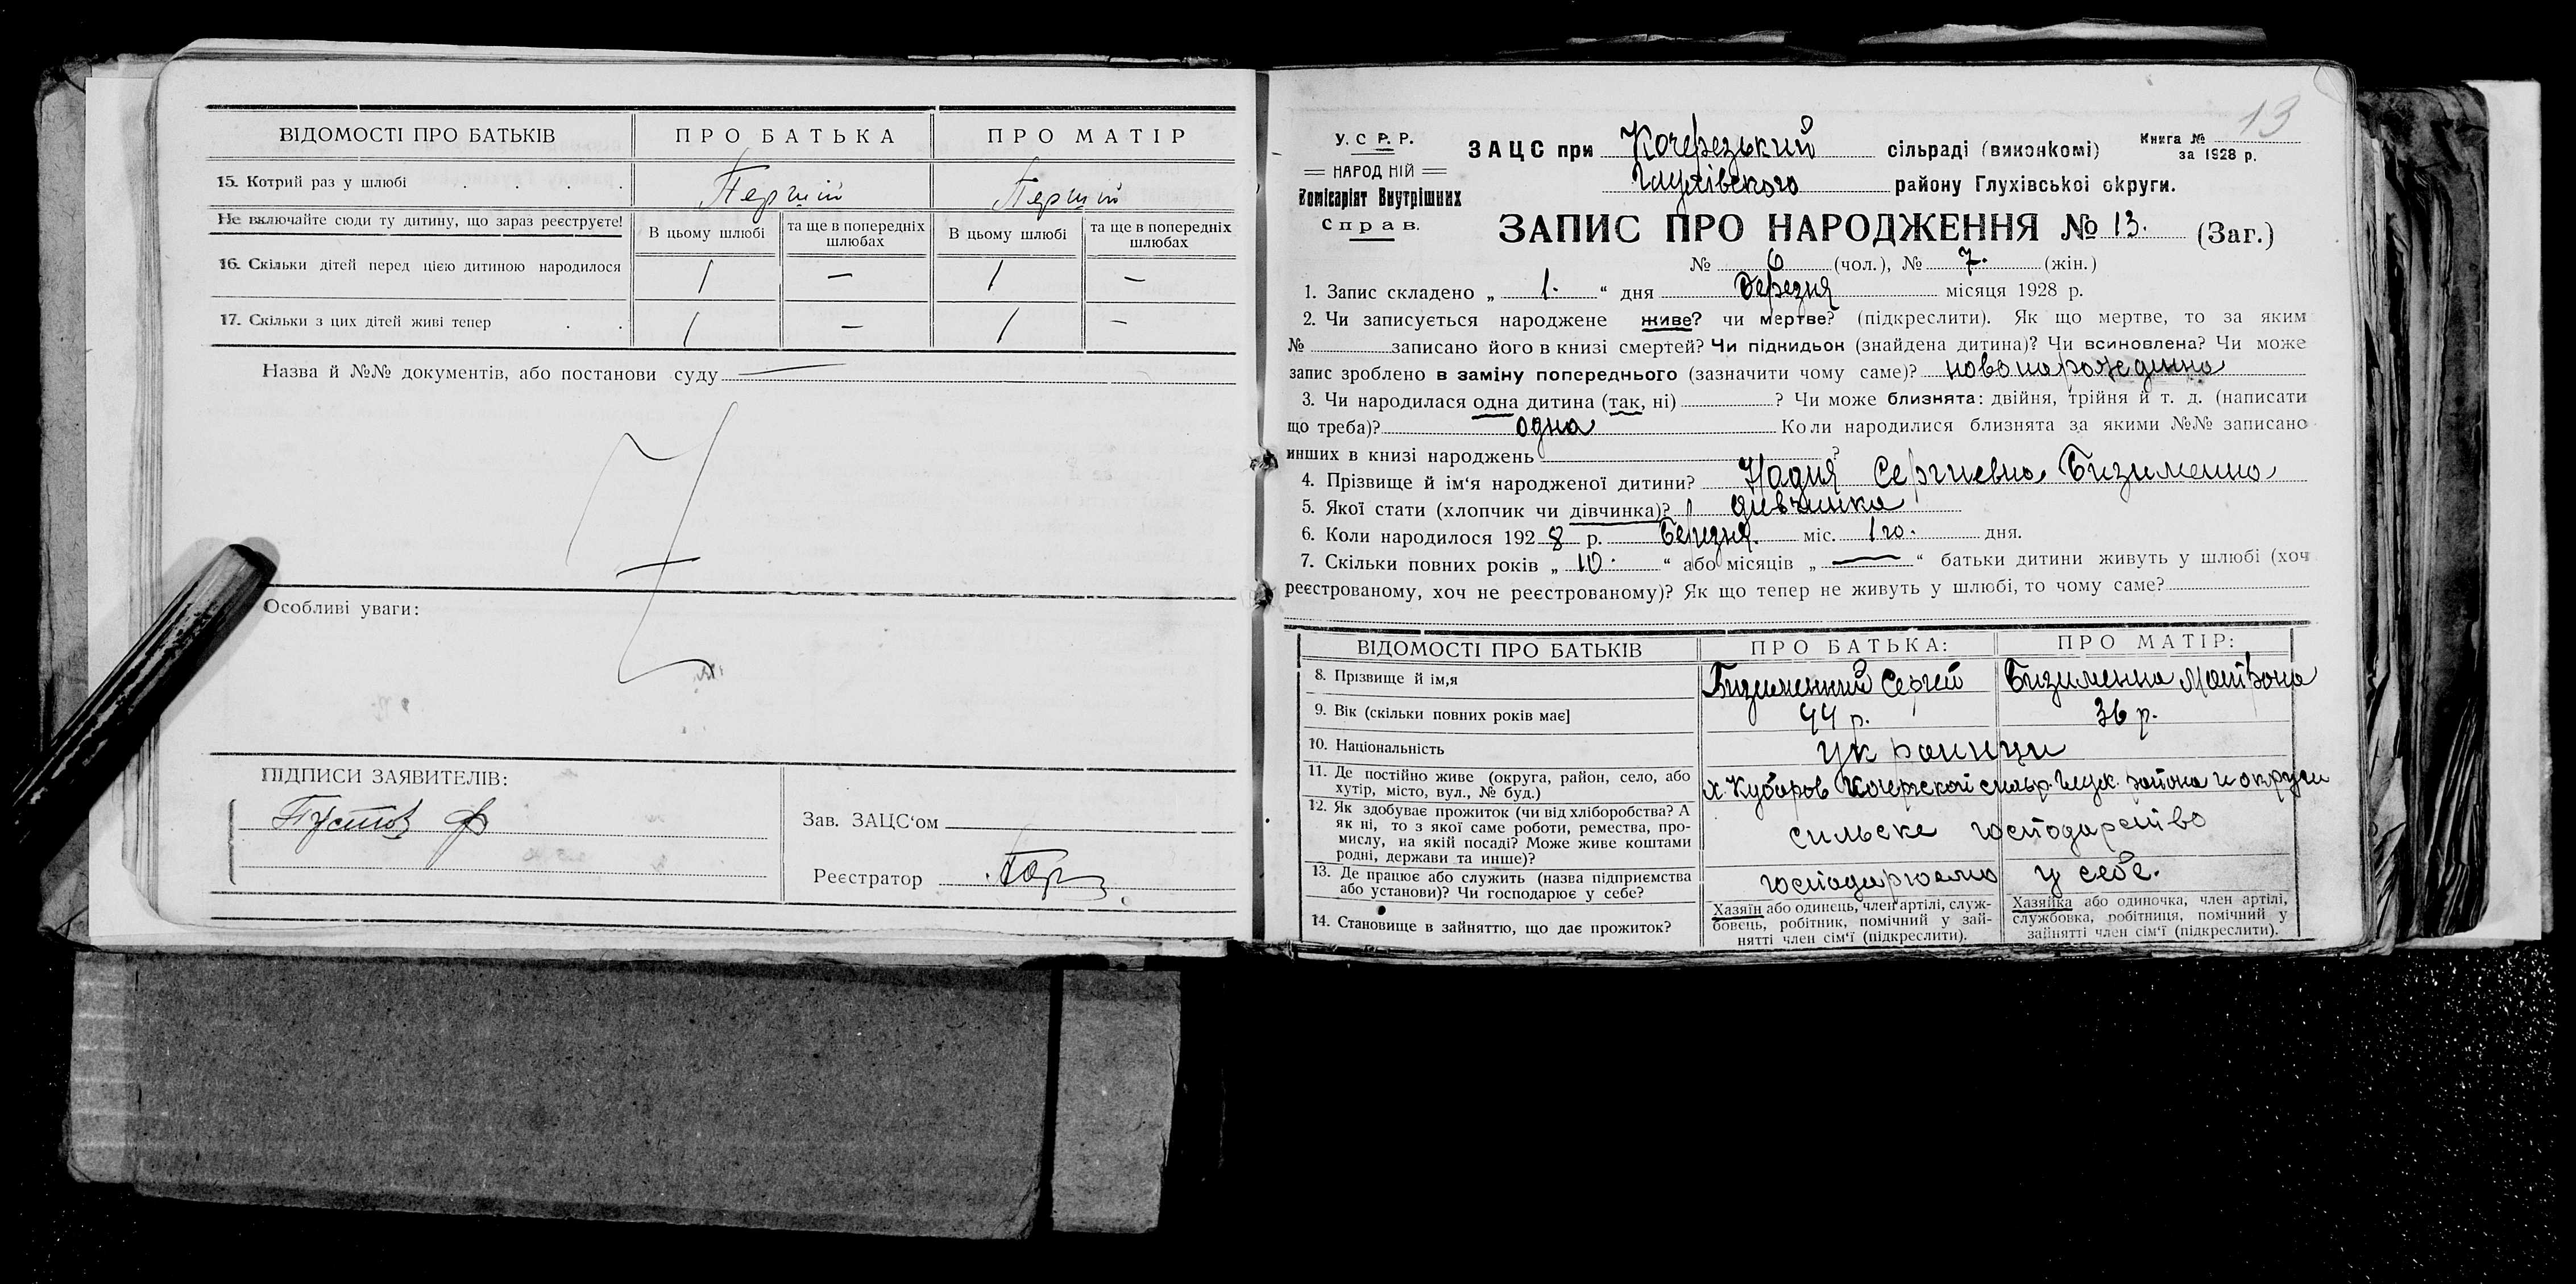 ВІДОМОСТІ ПРО БАТЬКІВ ПРО БАТЬКА ПРО МАТІР
15. Котрий раз у шлюбі . . . . Перший Перший
Не включайте сюди ту дитину, що зараз реєструєте! В цьому шлюбі та ще в попередніх шлюбах В цьому шлюбі та ще в попередніх шлюбах
16. Скільки дітей перед цією дитиною народилося 1 — 1 —
17. Скільки з цих дітей живі тепер . . 1 — 1 —
Назва й №№ документів, або постанови суду —
Особливі уваги:
ПІДПИСИ ЗАЯВИТЕЛІВ:
Зав. ЗАЦС‘ом
Реєстратор
13
У. С. Р. Р.
НАРОДНІЙ
Комісаріят Внутрішних
Справ.
ЗАЦС при Кочерезький сільраді (виконкомі) Книга №
за 1928 р.
Глухівского району Глухівської округи.
ЗАПИС ПРО НАРОДЖЕННЯ № 13. (Заг.)
№ 6 (чол.), № 7. (жін.)
1. Запис складено „ 1. “ дня березня місяця 1928 р.
2. Чи записується народжене живе? чи мертве? (підкреслити). Як що мертве, то за яким
№ записано його в книзі смертей? Чи підкидьок (знайдена дитина)? Чи всиновлена? Чи може
запис зроблено в заміну попереднього (зазначити чому саме)?
3. Чи народилася одна дитина (так, ні) ? Чи може близнята: двійня, трійня й т. д. (написати
що треба)? одна Коли народилися близнята за якими №№ записано
инших в книзі народжень ?
4. Прізвище й ім‘я народженої дитини? Надия Сергиевна Бизименна
5. Якої стати (хлопчик чи дівчинка)? дивчинка
6. Коли народилося 1928 р. Березня. міс. 1го. дня.
7. Скільки повних років „ 10. “ або місяців „ — “ батьки дитини живуть у шлюбі (хоч
реєстрованому, хоч не реєстрованому)? Як що тепер не живуть у шлюбі, то чому саме?
ВІДОМОСТІ ПРО БАТЬКІВ ПРО БАТЬКА: ПРО МАТІР:
8. Прізвище й ім,я Бизименний Сергей Бизименна Матрона
9. Вік (скільки повних років має] 44 р. 36 р.
10. Національність украинци
11. Де постійно живе (округа, район, село, або
хутір, місто, вул., № буд.) х. Кубаров Кочерской сильр. Глух. района и округи
12. Як здобуває прожиток (чи від хліборобства? А
як ні, то з якої саме роботи, ремества, про-
мислу, на якій посаді? Може живе коштами
родні, держави та инше)? сильске господарство
13. Де працює або служить (назва підприємства
або установи)? Чи господарює у себе? господарюемо у себе.
14. Становище в зайняттю, що дає прожиток?
Хазяїн або одинець, член артілі, служ-
бовець, робітник, помічний у зай-
нятті член сім‘ї (підкреслити).
Хазяйка або одиночка, член артілі,
службовка, робітниця, помічний у
зайнятті член сім‘ї (підкреслити).